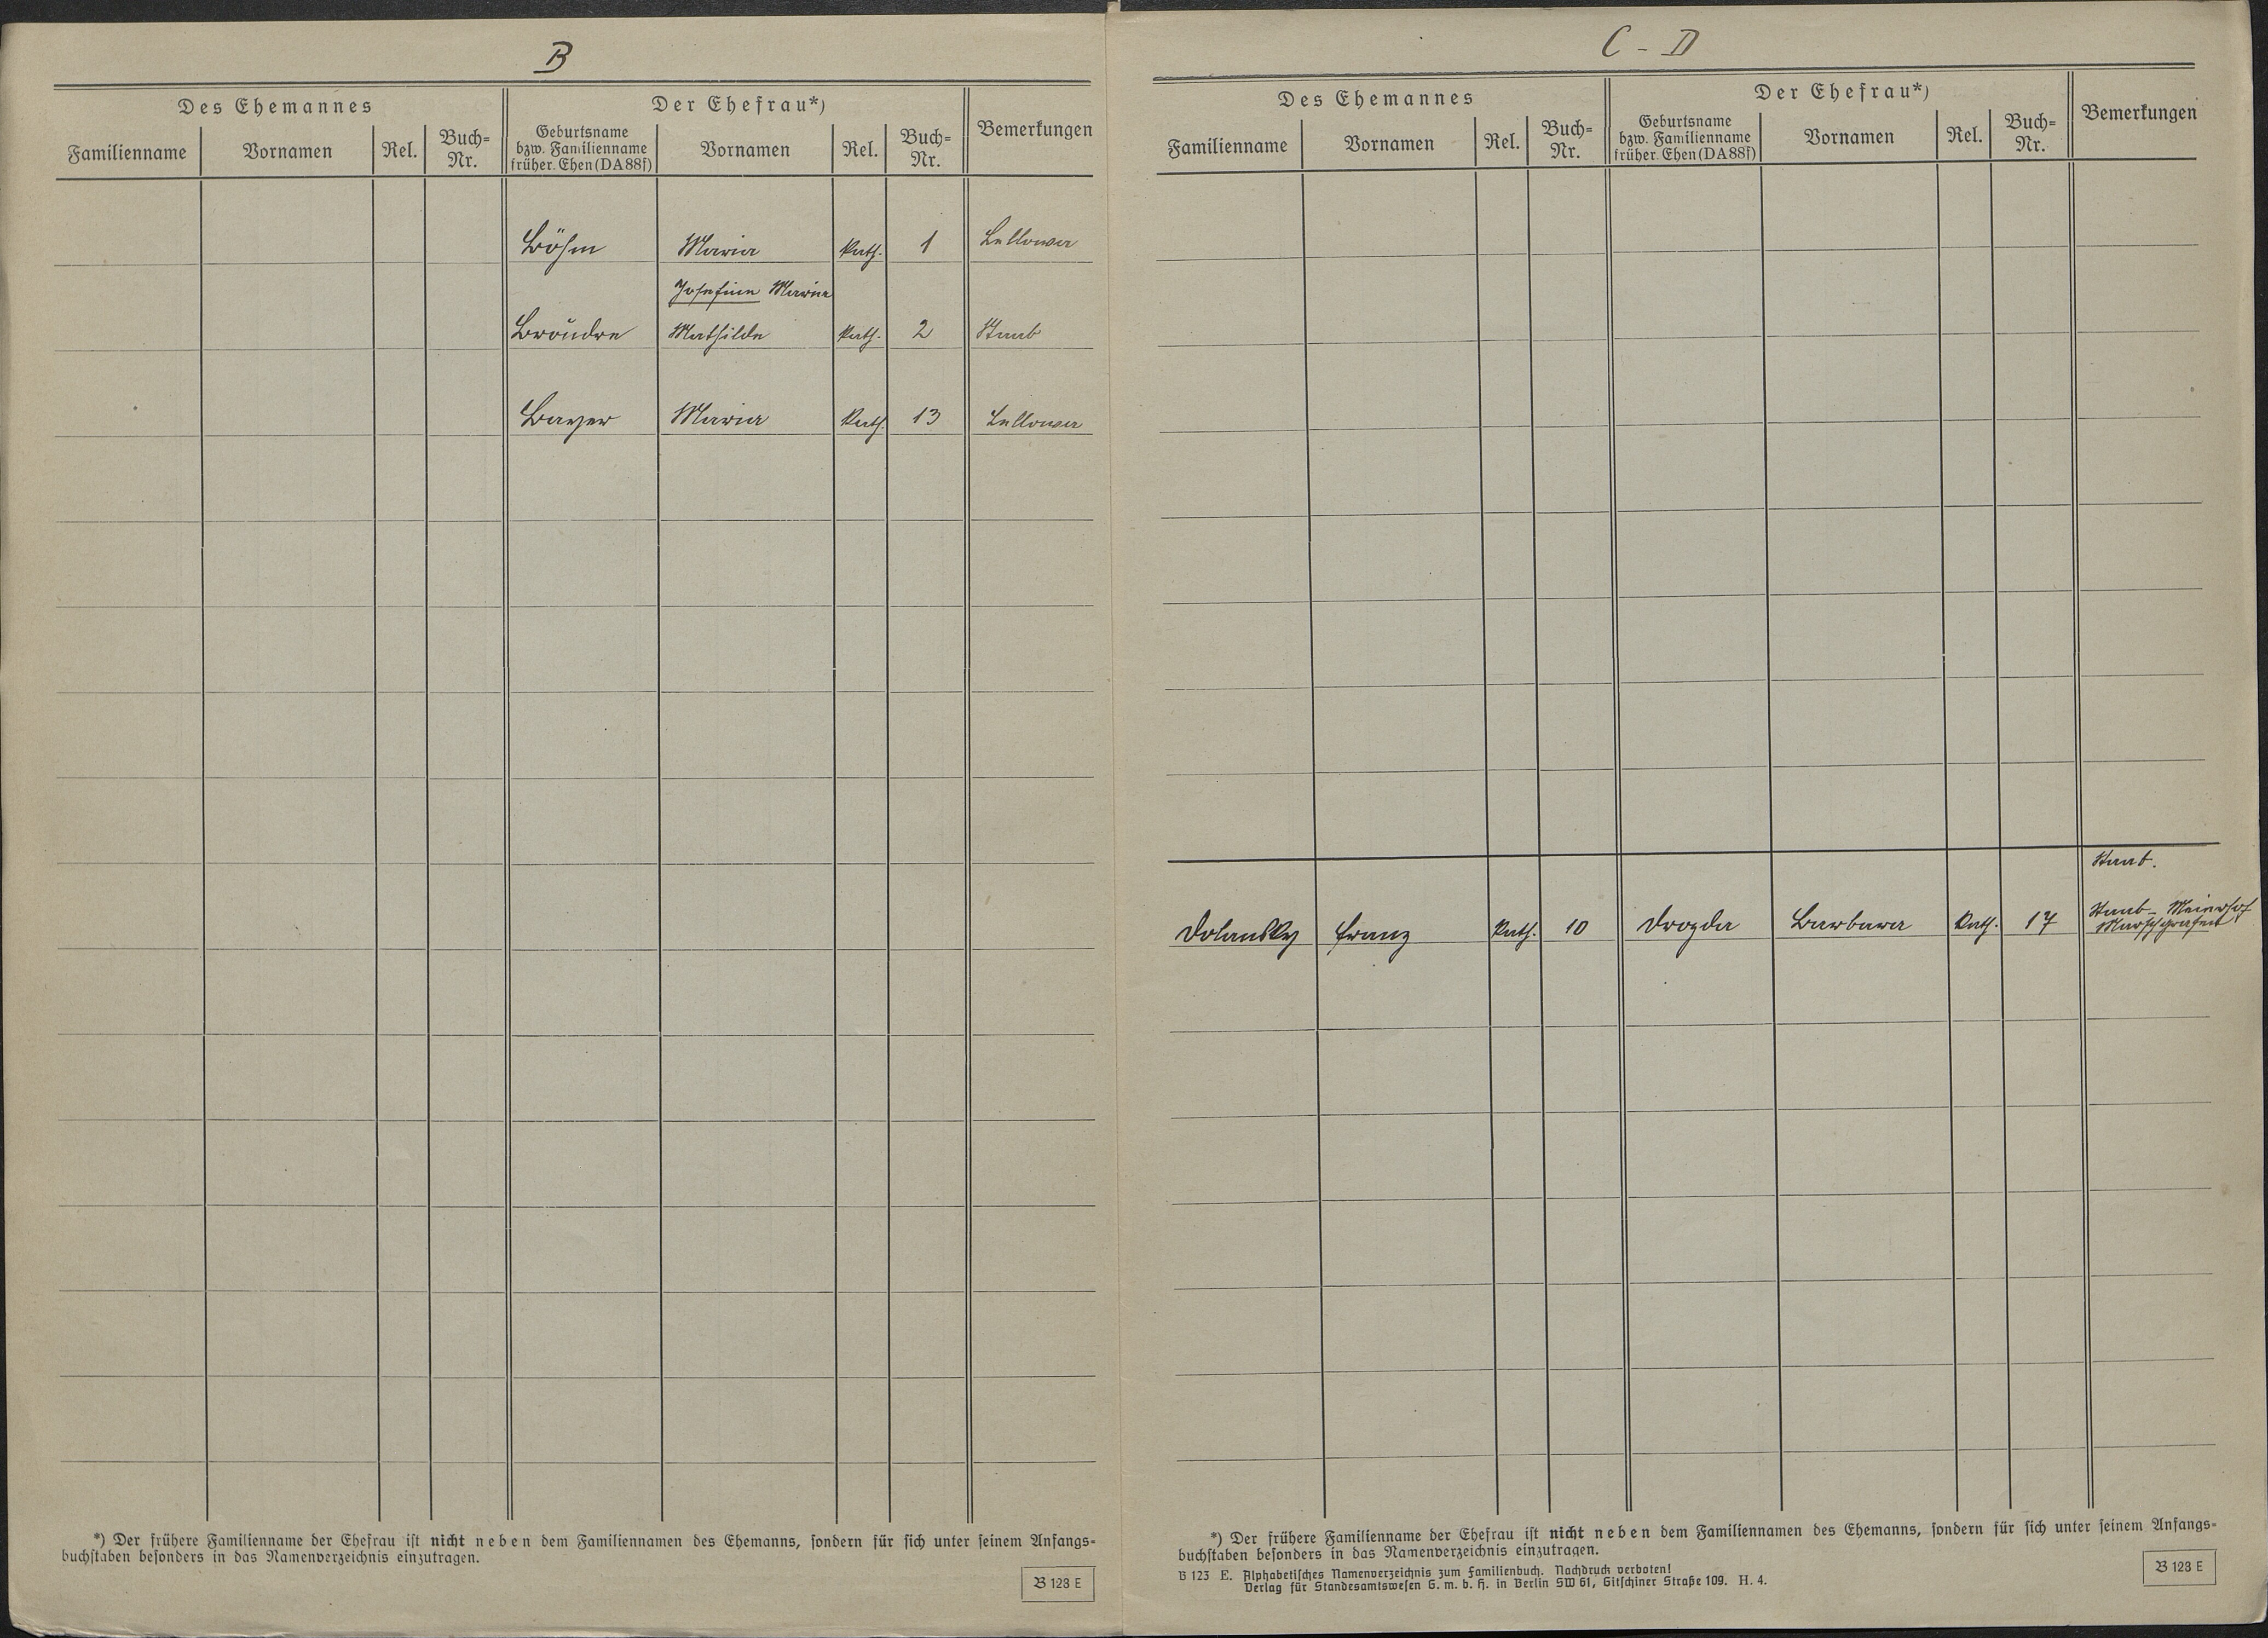 B
Des Ehemannes
Der Ehefrau*)
Bemerkungen
Familienname
Vornamen
Rel.
Buch-
Nr.
Geburtsname
bzw. Familienname
früher. Ehen (DA 88f)
Vornamen
Rel.
Buch-
Nr.
Böhm Maria kath. 1
Josefine Maria
Mathilde kath. 2 Staab
Bayer Maria kath. 13
*) Der frühere Familienname der Ehefrau ist nicht neben dem Familiennamen des Ehemanns, sondern für sich unter seinem Anfangs-
buchstaben besonders in das Namenverzeichnis einzutragen.
B 123 E
C - D
Des Ehemannes
Der Ehefrau*)
Bemerkungen
Familienname
Vornamen
Rel.
Buch-
Nr.
Geburtsname
bzw. Familienname
früher. Ehen (DA 88f)
Vornamen
Rel.
Buch-
Nr.
Staab.
Dolansky Franz kath. 10 Drozda Barbara kath. 17 Staab - Meierhof
*) Der frühere Familienname der Ehefrau ist nicht neben dem Familiennamen des Ehemanns, sondern für sich unter seinem Anfangs-
buchstaben besonders in das Namenverzeichnis einzutragen.
B 123 E. Alphabetisches Namenverzeichnis zum Familienbuch. Nachdruck verboten!
Verlag für Standesamtswesen G. m. b. H. in Berlin SW 61, Gitschiner Straße 109. H. 4.
B 123 E